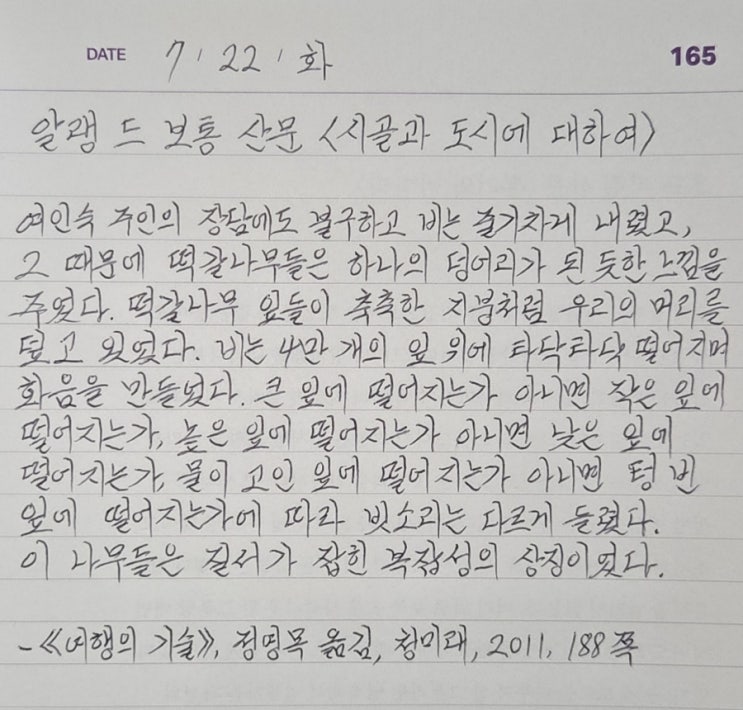 DATE 7 / 22 / 화 165
알랭 드 보통 산문 <시골과 도시에 대하여>
여인숙 주인의 장담에도 불구하고 비는 줄기차게 내렸고,
그 때문에 떡갈나무들은 하나의 덩어리가 된 듯한 느낌을
주었다. 떡갈나무 잎들이 축축한 지붕처럼 우리의 머리를
덮고 있었다. 비는 4만 개의 잎 위에 타닥타닥 떨어지며
화음을 만들었다. 큰 잎에 떨어지는가 아니면 작은 잎에
떨어지는가, 높은 잎에 떨어지는가 아니면 낮은 잎에
떨어지는가, 물이 고인 잎에 떨어지는가 아니면 텅 빈
잎에 떨어지는가에 따라 빗소리는 다르게 들렸다.
이 나무들은 질서가 잡힌 복잡성의 상징이었다.
-《여행의 기술》, 정영목 옮김, 청미래, 2011, 188쪽